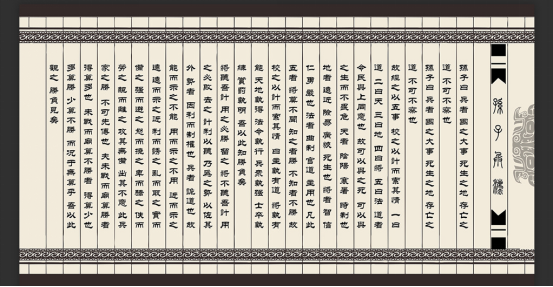 孫子兵灋
孫子曰兵者國之大事死生之地存亡之
道不可不察也
孫子曰兵者國之大事死生之地存亡之
道不可不察也
故經之以五事 校之以計而索其情 一曰
道 二曰天 三曰地 四曰將 五曰法 道者
令民與上同意也 故可以與之死 可以與
之生而不畏危 天者 陰陽 寒暑 時制也
地者 遠近 險易 廣狹 死生也 將者 智信
仁勇嚴也 法者 曲制 官道 主用也 凡此
五者 將莫不聞 知之者勝 不知者不勝 故
校之以計而索其情 曰 主孰有道 將孰有
能 天地孰得 法令孰行 兵眾孰強 士卒孰
練 賞罰孰明 吾以此知勝負矣
將聽吾計用之必勝留之 將不聽吾計用
之必敗去之 計利以聽 乃為之勢 以佐其
外 勢者 因利而制權也 兵者 詭道也 故
能而示之不能 用而示之不用 近而示之
遠 遠而示之近 利而誘之 亂而取之 實而
備之 強而避之 怒而撓之 卑而驕之 佚而
勞之 親而離之 攻其無備 出其不意 此兵
家之勝 不可先傳也 夫未戰而廟算勝者
得算多也 未戰而廟算不勝者 得算少也
多算勝 少算不勝 而況于無算乎 吾以此
觀之 勝負見矣